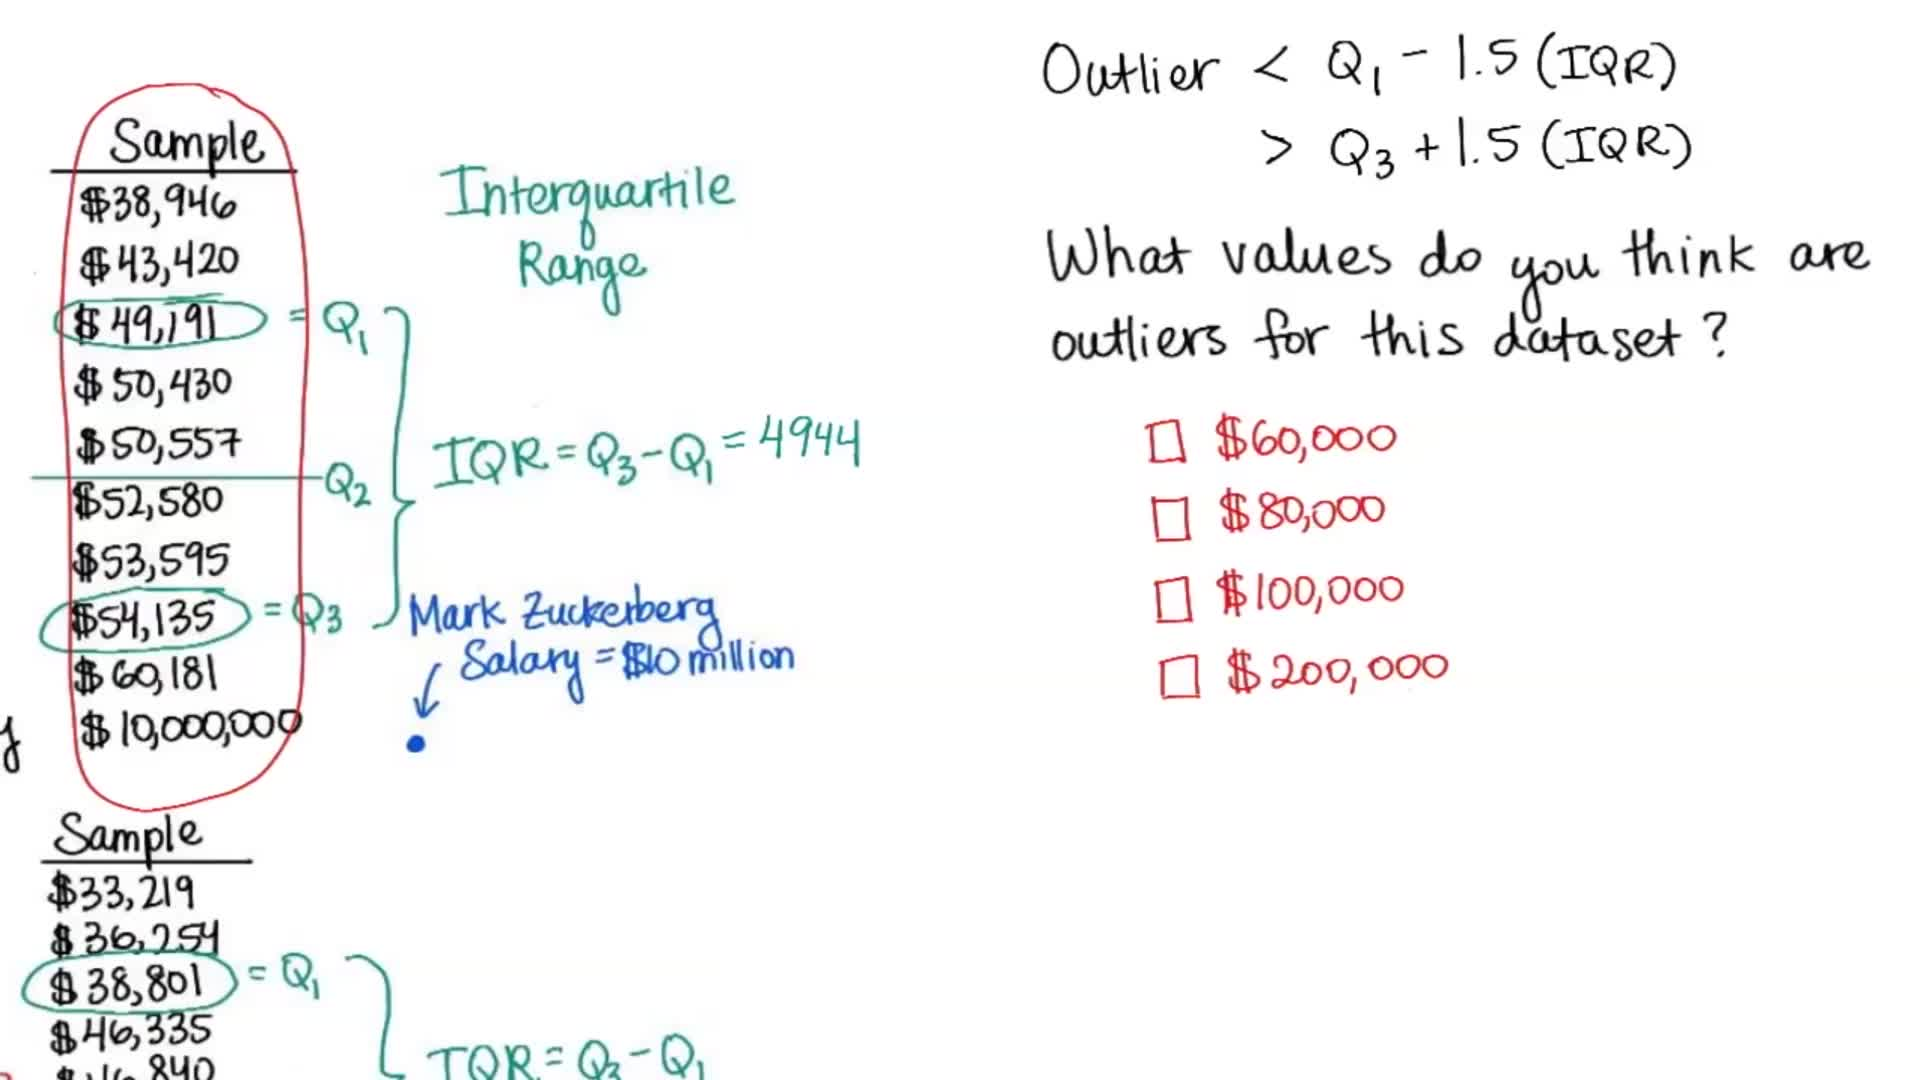 Sample
$38,946
$43,420
$49,191 = Q1
$50,430
$50,557
Q2
$52,580
$53,595
$54,135 = Q3
$60,181
$10,000,000
Interquartile
Range
IQR = Q3 - Q1 = 4944
Mark Zuckerberg
Salary = $10 million
y
Sample
$33,219
$36,254
$38,801 = Q1
$46,335
$46,840
IQR = Q3 - Q1
Outlier < Q1 - 1.5 (IQR)
> Q3 + 1.5 (IQR)
What values do you think are
outliers for this dataset?
$60,000
$80,000
$100,000
$200,000